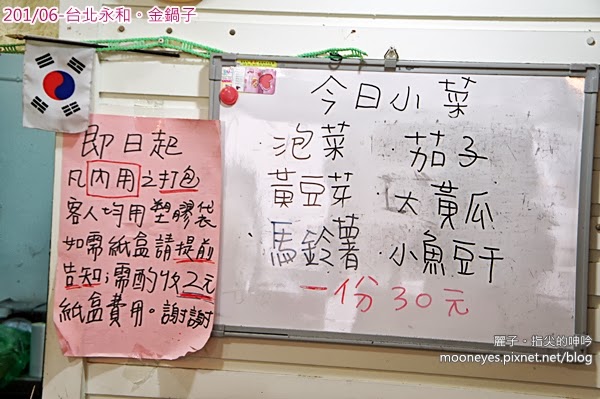 201/06-台北永和。金鍋子
即日起
凡內用之打包
客人均用塑膠袋
如需紙盒請提前
告知;需酌收2元
紙盒費用。謝謝
今日小菜
泡菜 茄子
黃豆芽 大黃瓜
馬鈴薯 小魚豆干
一份30元
麗子。指尖的呻吟
mooneyes.pixnet.net/blog